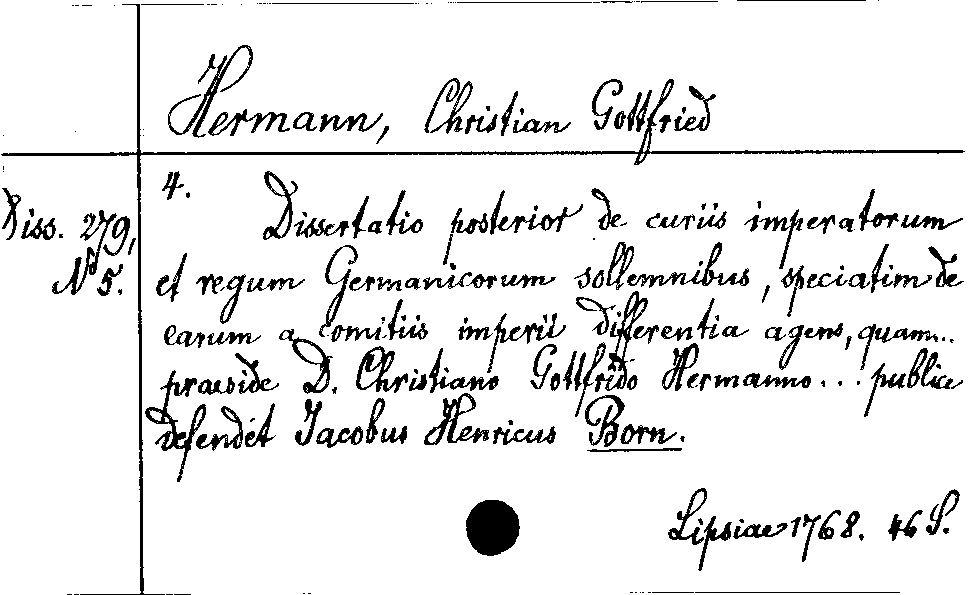 Hermann, Christian Gottfried
4.
Diss. 279,
No 5.
Dissertatio posterior de curiis imperatorum
et regum Germanicorum sollemnibus, speciatim de
earum a comitiis imperii differentia agens, quam...
praeside D. Christiano Gottfrido Hermanno... publice
defendet Jacobus Henricus Born.
Lipsiae 1768. 46 S.